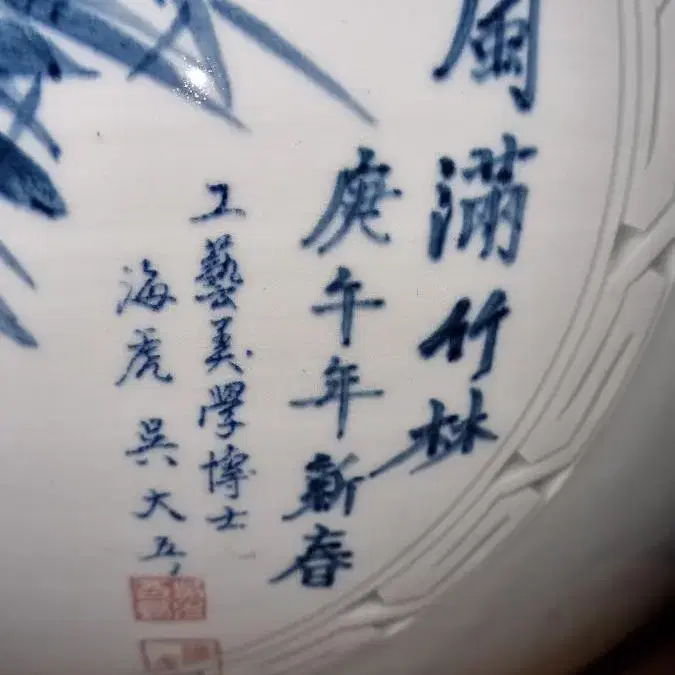 風滿竹林
庚午年新春
工藝美學博士
海虎 吳大五